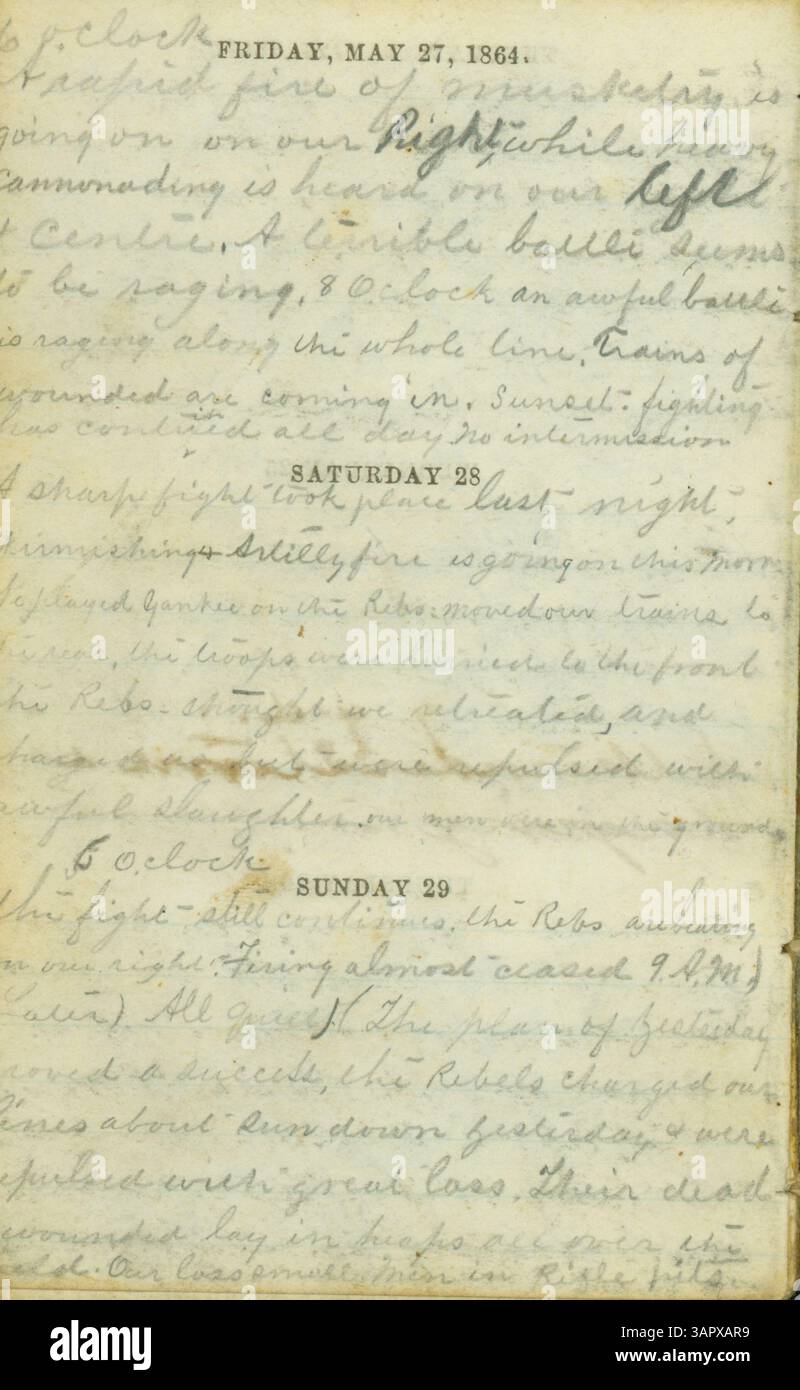 6 o.clock
FRIDAY, MAY 27, 1864.
A rapid fire of musketry is
going on on our Right, while heavy
cannonading is heard on our left
& Centre. A terrible battle seems
to be raging. 8 O.clock an awful battle
is raging along the whole line. Trains of
wounded are coming in. Sunset. fighting
has contiued all day no intermission
SATURDAY 28
A sharp fight took place last night,
skirmishing & Artilly fire is going on this morn
We played Yankee on the Rebs. moved our trains to
the rear, the troops were to the front
the Rebs. thought we retreated, and
charged us but were repulsed with
awful slaughter. our men were in the ground
6 O.clock
SUNDAY 29
the fight still continues. the Rebs are
on our right. Firing almost ceased 9 A.M.)
Later) All quiet)( The plan of yesterday
proved a success, the Rebels charged our
lines about sundown yesterday & were
repulsed with great loss. Their dead
wounded lay in heaps all over the
field. Our loss small Men in Rifle pits.
alamy
alamy
Image ID: 3APXAR9
www.alamy.com